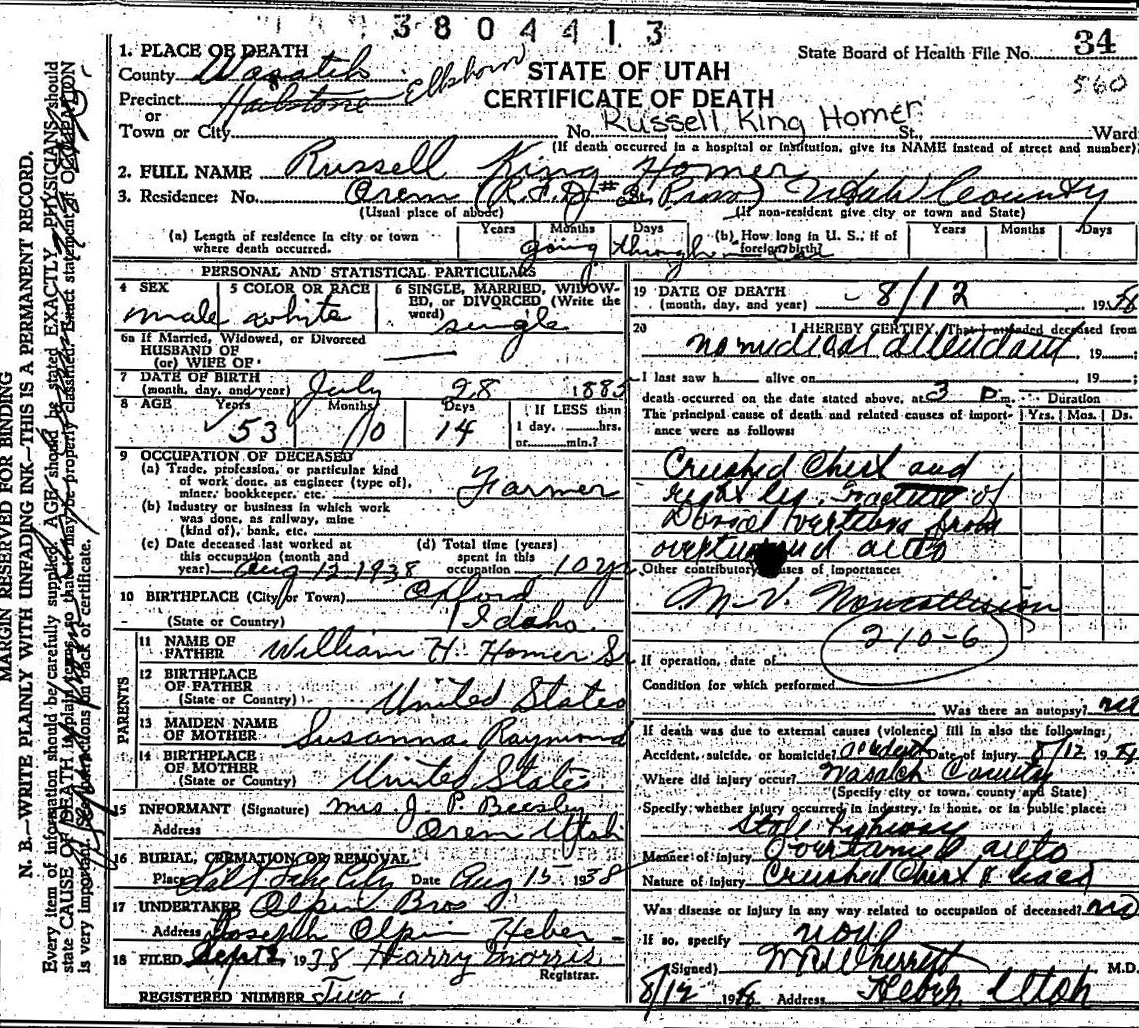 3804413
1. PLACE OF DEATH
State Board of Health File No. 34
County Wasatch
STATE OF UTAH
560
Precinct Hailstone Elkhorn
CERTIFICATE OF DEATH
or
Town or City
No. Russell King Homer St., Ward
(If death occurred in a hospital or institution, give its NAME instead of street and number)
2. FULL NAME Russell King Homer
3. Residence: No. Orem R.F.D. #2 Provo Utah County
(Usual place of abode) (If non-resident give city or town and State)
(a) Length of residence in city or town where death occurred. Years Months Days going through in car
(b) How long in U. S., if of foreign birth? Years Months Days
PERSONAL AND STATISTICAL PARTICULARS
4 SEX male
5 COLOR OR RACE white
6 SINGLE, MARRIED, WIDOWED, or DIVORCED (Write the word) single
6a If Married, Widowed, or Divorced
HUSBAND OF
(or) WIFE OF
7 DATE OF BIRTH (month, day, and year) July 28 1885
8 AGE Years 53 Months 0 Days 14 If LESS than 1 day, hrs. or min.?
9 OCCUPATION OF DECEASED
(a) Trade, profession, or particular kind of work done, as engineer (type of), miner, bookkeeper, etc. Farmer
(b) Industry or business in which work was done, as railway, mine (kind of), bank, etc.
(c) Date deceased last worked at this occupation (month and year) Aug 12 1938
(d) Total time (years) spent in this occupation 10 yr
10 BIRTHPLACE (City or Town) Oxford
(State or Country) Idaho
PARENTS
11 NAME OF FATHER William H. Homer Sr
12 BIRTHPLACE OF FATHER (State or Country) United States
13 MAIDEN NAME OF MOTHER Susanna Raymond
14 BIRTHPLACE OF MOTHER (State or Country) United States
15 INFORMANT (Signature) Mrs J. P. Beesley
Address Orem Utah
16 BURIAL, CREMATION, OR REMOVAL
Place Salt Lake City Date Aug 15 1938
17 UNDERTAKER Olpin Bros
Address Joseph Olpin Heber
18 FILED Sept 1938 Harry Morris
Registrar.
REGISTERED NUMBER Two
19 DATE OF DEATH (month, day, and year) 8/12 1938
20 I HEREBY CERTIFY, That I attended deceased from
no medical attendant, 19
I last saw h alive on , 19
death occurred on the date stated above, at 3 P m. Duration
The principal cause of death and related causes of importance were as follows: Yrs. Mos. Ds.
Crushed Chest and
right leg. Fracture of
Dorsal Vertebra from
overturned auto
Other contributory causes of importance:
M.V. Noncollision
210-6
If operation, date of
Condition for which performed
Was there an autopsy? no
If death was due to external causes (violence) fill in also the following:
Accident, suicide, or homicide? Accident Date of injury 8/12, 19
Where did injury occur? Wasatch County
(Specify city or town, county and State)
Specify whether injury occurred in industry, in home, or in public place:
State Highway
Manner of injury Overturned auto
Nature of injury Crushed Chest &
Was disease or injury in any way related to occupation of deceased? no
If so, specify
(Signed) M.D.
8/12 1938 Address Heber, Utah
MARGIN RESERVED FOR BINDING
N. B.—WRITE PLAINLY WITH UNFADING INK—THIS IS A PERMANENT RECORD.
Every item of information should be carefully supplied. AGE should be stated EXACTLY. PHYSICIANS should
state CAUSE OF DEATH in plain terms, so that it may be properly classified. Exact statement of OCCUPATION
is very important. See instructions on back of certificate.